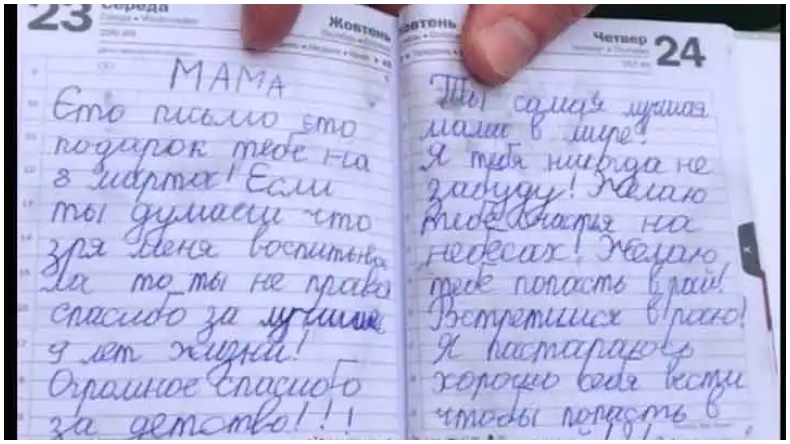 23 Середа
Жовтень
МАМА
Єто письмо ето
подарок тебе на
8 марта! Если
ты думаеш что
зря меня воспитыва
ла то ты не права
спасибо за лучшие
9 лет жизни!
Огромное спасибо
за детство!!!
Жовтень
Четвер 24
Ты самая лучшая
мама в мире!
Я тебя никогда не
забуду! Желаю
тебе счастья на
небесах! Желаю
тебе попасть в рай!
Встретимся в раю!
Я пастараюсь
хорошо себя вести
чтобы попасть в